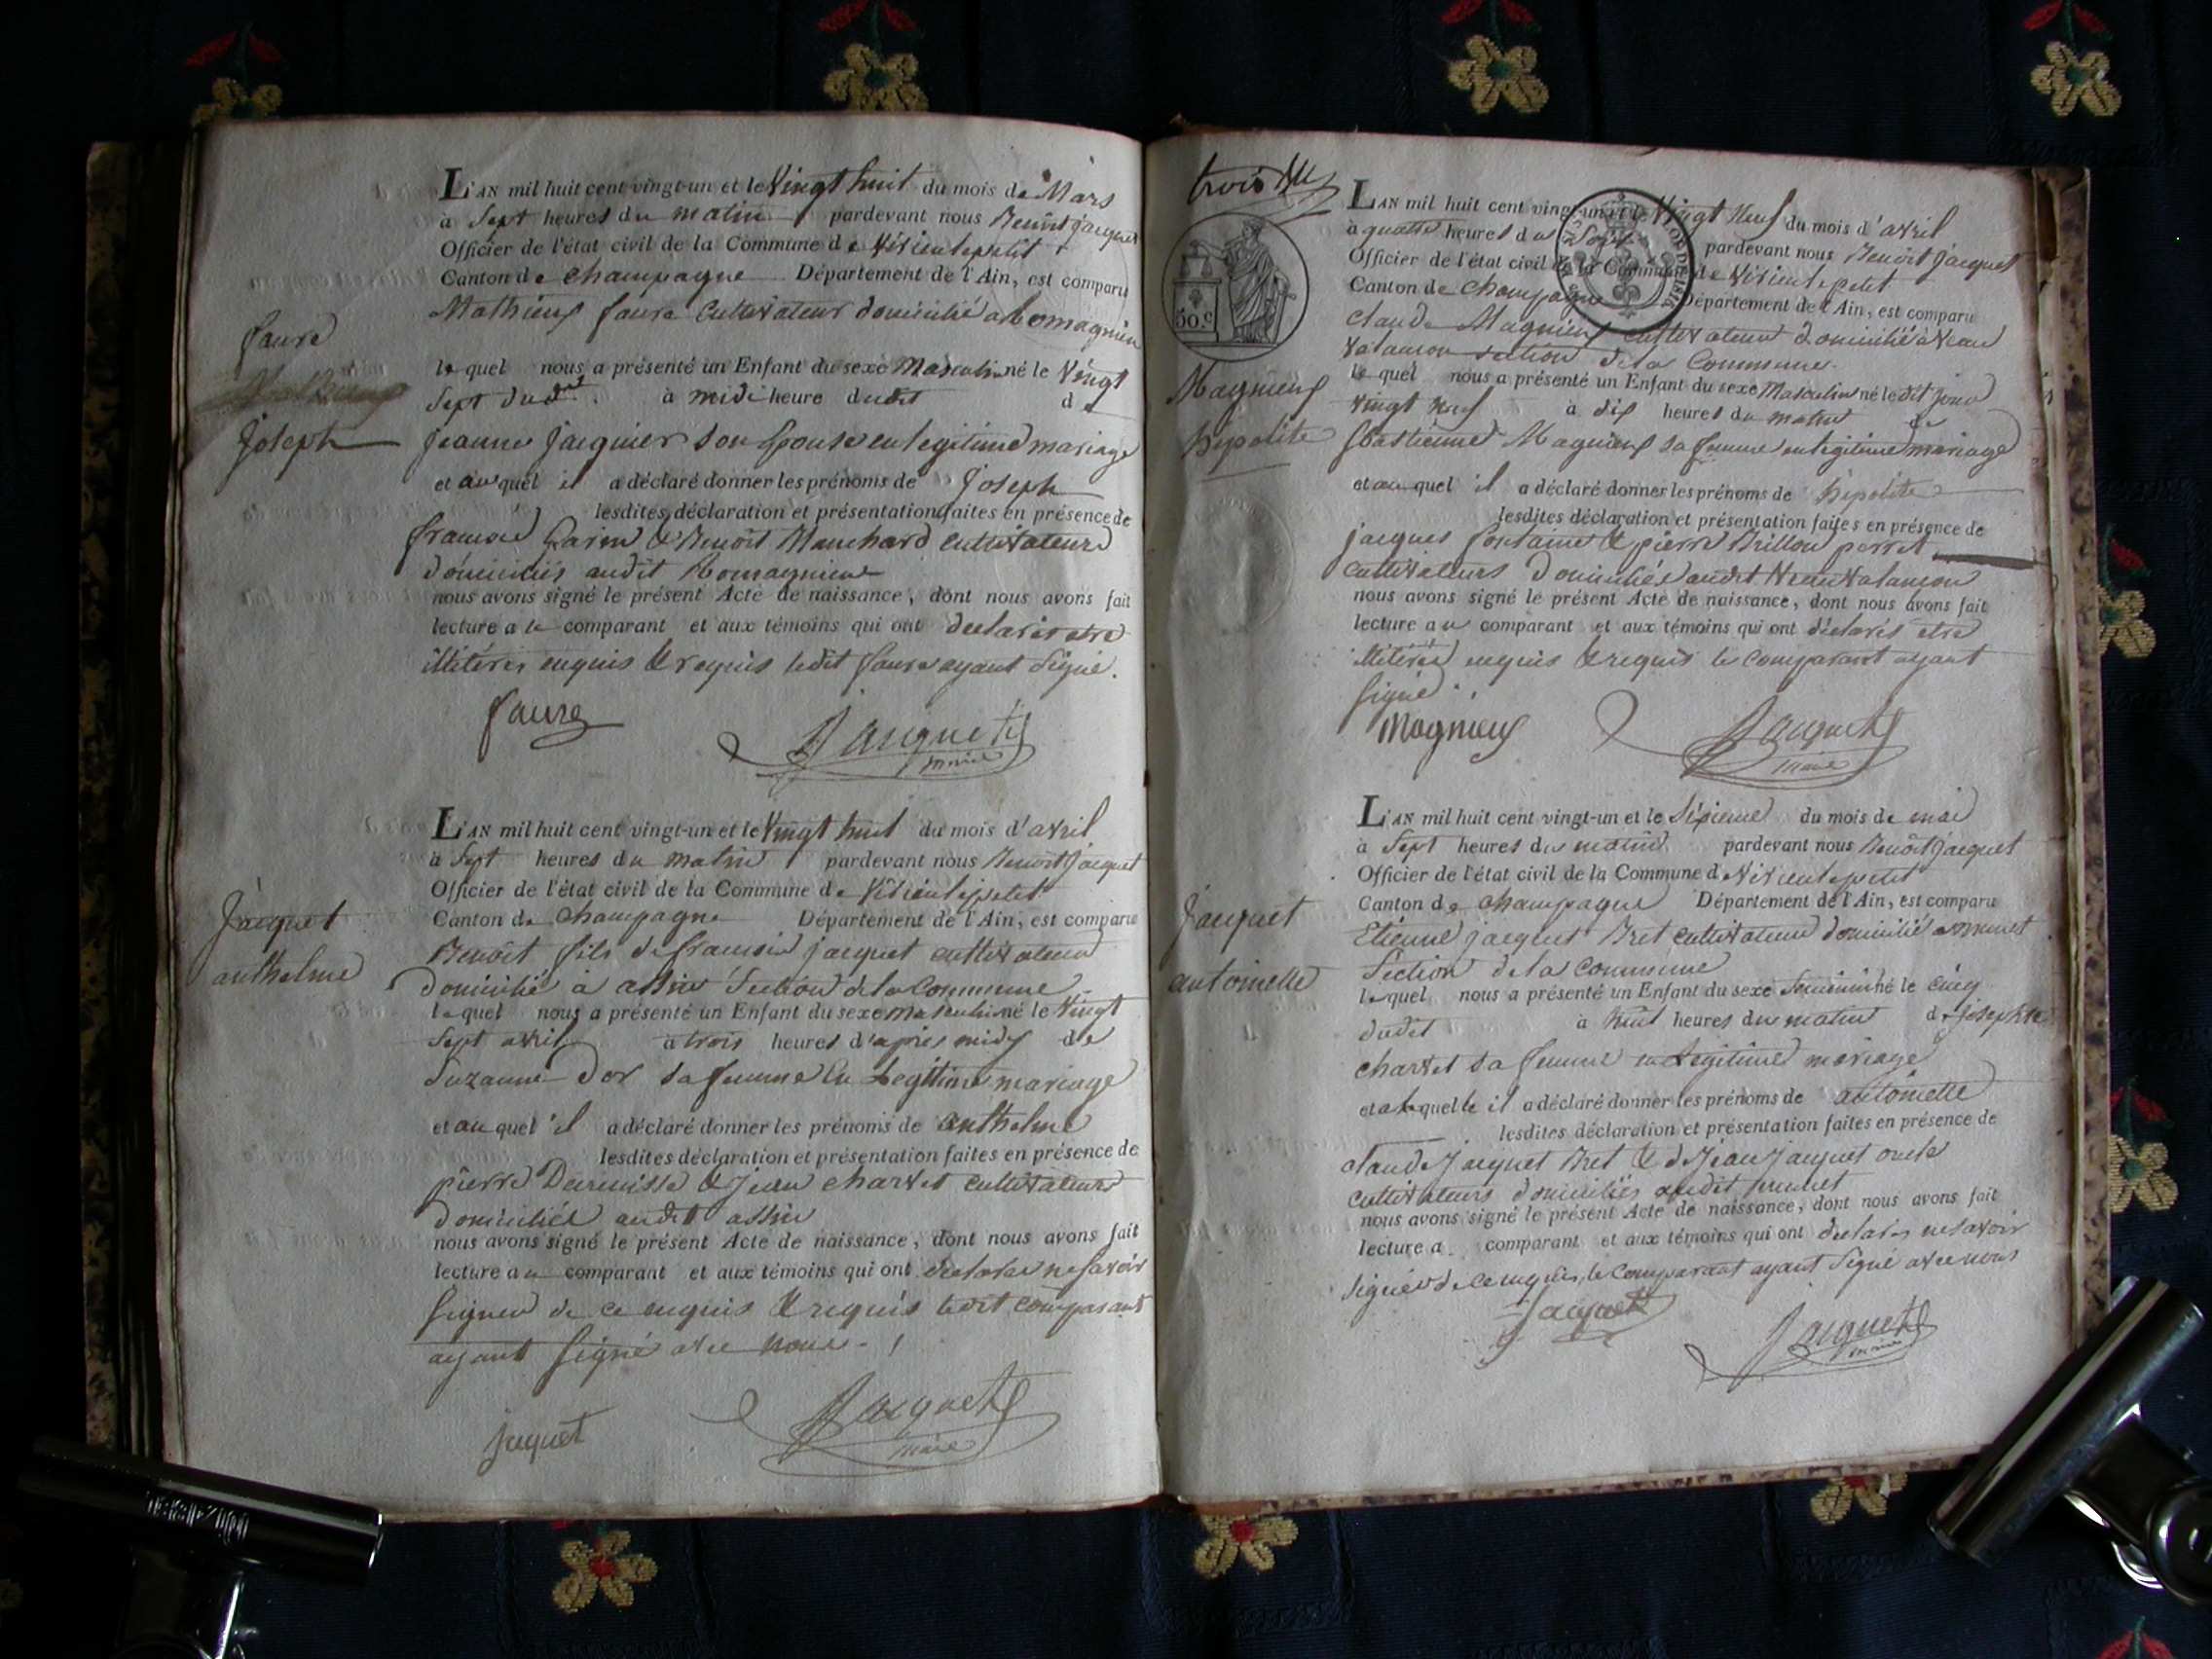 L'AN mil huit cent vingt-un et le Vingt huit du mois de Mars
à Sept heures du matin pardevant nous Benoit Jacquet
Officier de l'état civil de la Commune de Virieulepetit
Canton de Champagne Département de l'Ain, est comparu
Mathieu faure Cultivateur domicilié a
faure
lequel nous a présenté un Enfant du sexe Masculin né le Vingt
Sept dudit à midi heure dudit d
Joseph
jeanne jacquier son Epouse en legitime mariage
et auquel il a déclaré donner les prénoms de Joseph
lesdites déclaration et présentation faites en présence de
francois & Benoit cultivateurs
domiciliés audit
nous avons signé le présent Acte de naissance, dont nous avons fait
lecture au comparant et aux témoins qui ont declarés etre
illitérés enquis & requis ledit faure ayant Signé.
faure
Jacquet
maire
L'AN mil huit cent vingt-un et le Vingt huit du mois d'avril
à Sept heures du matin pardevant nous Benoit Jacquet
Officier de l'état civil de la Commune de Virieulepetit
Jacquet
Canton de Champagne Département de l'Ain, est comparu
Benoit fils de francois jacquet cultivateur
anthelme
domicilié à assin Section de la Commune
lequel nous a présenté un Enfant du sexe masculin né le Vingt
Sept avril à trois heures d'après midy de
Suzanne Dor sa femme En Legitime mariage
et auquel il a déclaré donner les prénoms de anthelme
lesdites déclaration et présentation faites en présence de
pierre & Jean charvet cultivateurs
domiciliés audit assin
nous avons signé le présent Acte de naissance, dont nous avons fait
lecture au comparant et aux témoins qui ont declarés ne Savoir
Signer de ce enquis & requis ledit comparant
ayant Signé avec nous.
jaquet
Jacquet
maire
trois
L'AN mil huit cent vingt-un et le Vingt Neuf du mois d'avril
à quatre heures du Soir pardevant nous Benoit Jacquet
Officier de l'état civil de la Commune de Virieulepetit
Canton de Champagne Département de l'Ain, est comparu
50.c
claude Magnieux cultivateur domicilié à
section de la Commune.
Magnieux
lequel nous a présenté un Enfant du sexe Masculin né ledit jour
vingt neuf à dix heures du matin de
hipolite
Sbastienne Magnieux sa femme en legitime mariage
et auquel il a déclaré donner les prénoms de hipolite
lesdites déclaration et présentation faites en présence de
jacques fontaine & pierre Brillon perret
cultivateurs domiciliés audit
nous avons signé le présent Acte de naissance, dont nous avons fait
lecture au comparant et aux témoins qui ont déclarés etre
illitérés enquis & requis le comparant ayant
Signé.
Magnieux
Jacquet
maire
L'AN mil huit cent vingt-un et le Sixieme du mois de mai
à Sept heures du matin pardevant nous Benoit Jacquet
Officier de l'état civil de la Commune de Virieulepetit
Jacquet
Canton de Champagne Département de l'Ain, est comparu
Etienne jacquet Bret cultivateur domicilié a munet
antoinette
Section de la Commune
lequel nous a présenté un Enfant du sexe feminin né le cinq
dudit à huit heures du matin de josephte
charvet sa femme en Legitime mariage
et a laquelle il a déclaré donner les prénoms de antoinette
lesdites déclaration et présentation faites en présence de
claude Jacquet Bret & de Jean Jacquet oncle
cultivateurs domiciliés audit munet
nous avons signé le présent Acte de naissance, dont nous avons fait
lecture a comparant et aux témoins qui ont declarés ne savoir
Signer de ce enquis, le Comparant ayant Signé avec nous
Jacquet
Jacquet
maire